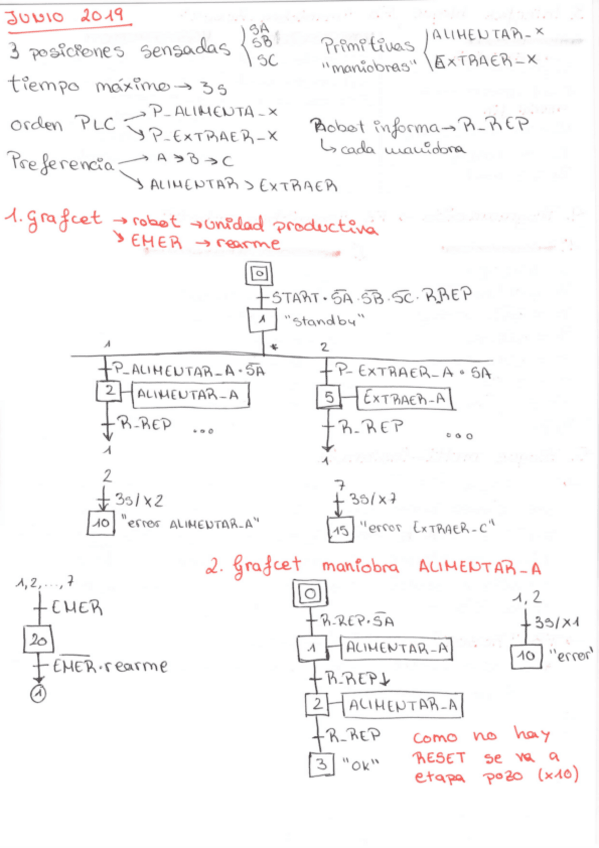 JUNIO 2019
3 posiciones sensadas SA SB SC
Primitivas "maniobras" ALIMENTAR_X EXTRAER_X
tiempo máximo → 3s
orden PLC → P_ALIMENTA_X
→ P_EXTRAER_X
Robot informa → R_REP
↳ cada maniobra
Preferencia → A > B > C
→ ALIMENTAR > EXTRAER
1. Grafcet → robot → unidad productiva
→ EMER → rearme
0
START · S̅A̅ · S̅B̅ · S̅C̅ · RREP
1 "standby"
*
1 2
P_ALIMENTAR_A · S̅A̅ P_EXTRAER_A · SA
2 ALIMENTAR_A 5 EXTRAER_A
R_REP ... R_REP ...
1 1
2 7
3s/x2 3s/x7
10 "error ALIMENTAR_A" 15 "error EXTRAER_C"
2. Grafcet maniobra ALIMENTAR_A
1,2,...,7
EMER
20
E̅M̅E̅R̅ · rearme
1
0
R_REP · S̅A̅
1 ALIMENTAR_A
R_REP↓
2 ALIMENTAR_A
R_REP
3 "OK"
1, 2
3s/x1
10 "error"
como no hay
RESET se va a
etapa pozo (x10)